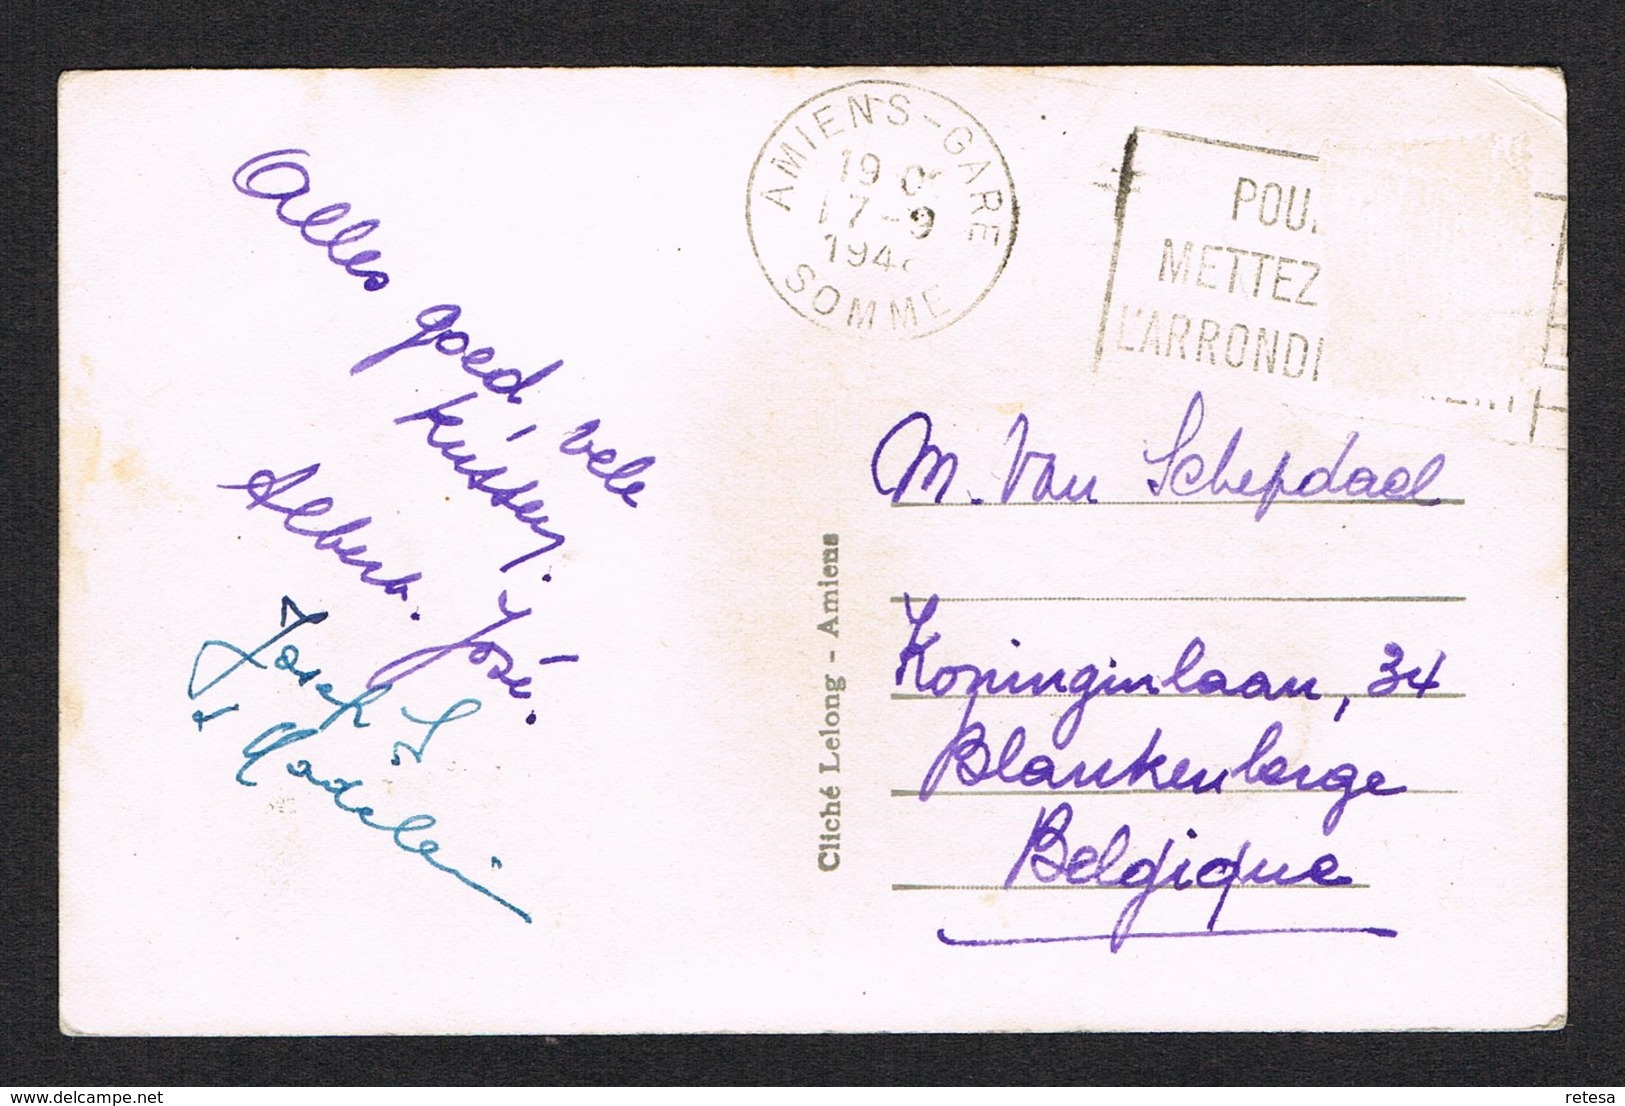 AMIENS-GARE
17-9
SOMME
METTEZ
Alles
goed, vele
kussen.
Albert. José.
Joseph
+ Madelein
Cliché Lelong - Amiens
M. Van Schepdael
Koninginlaan, 34
Blankenberge
Belgique
delcampe.net
retesa